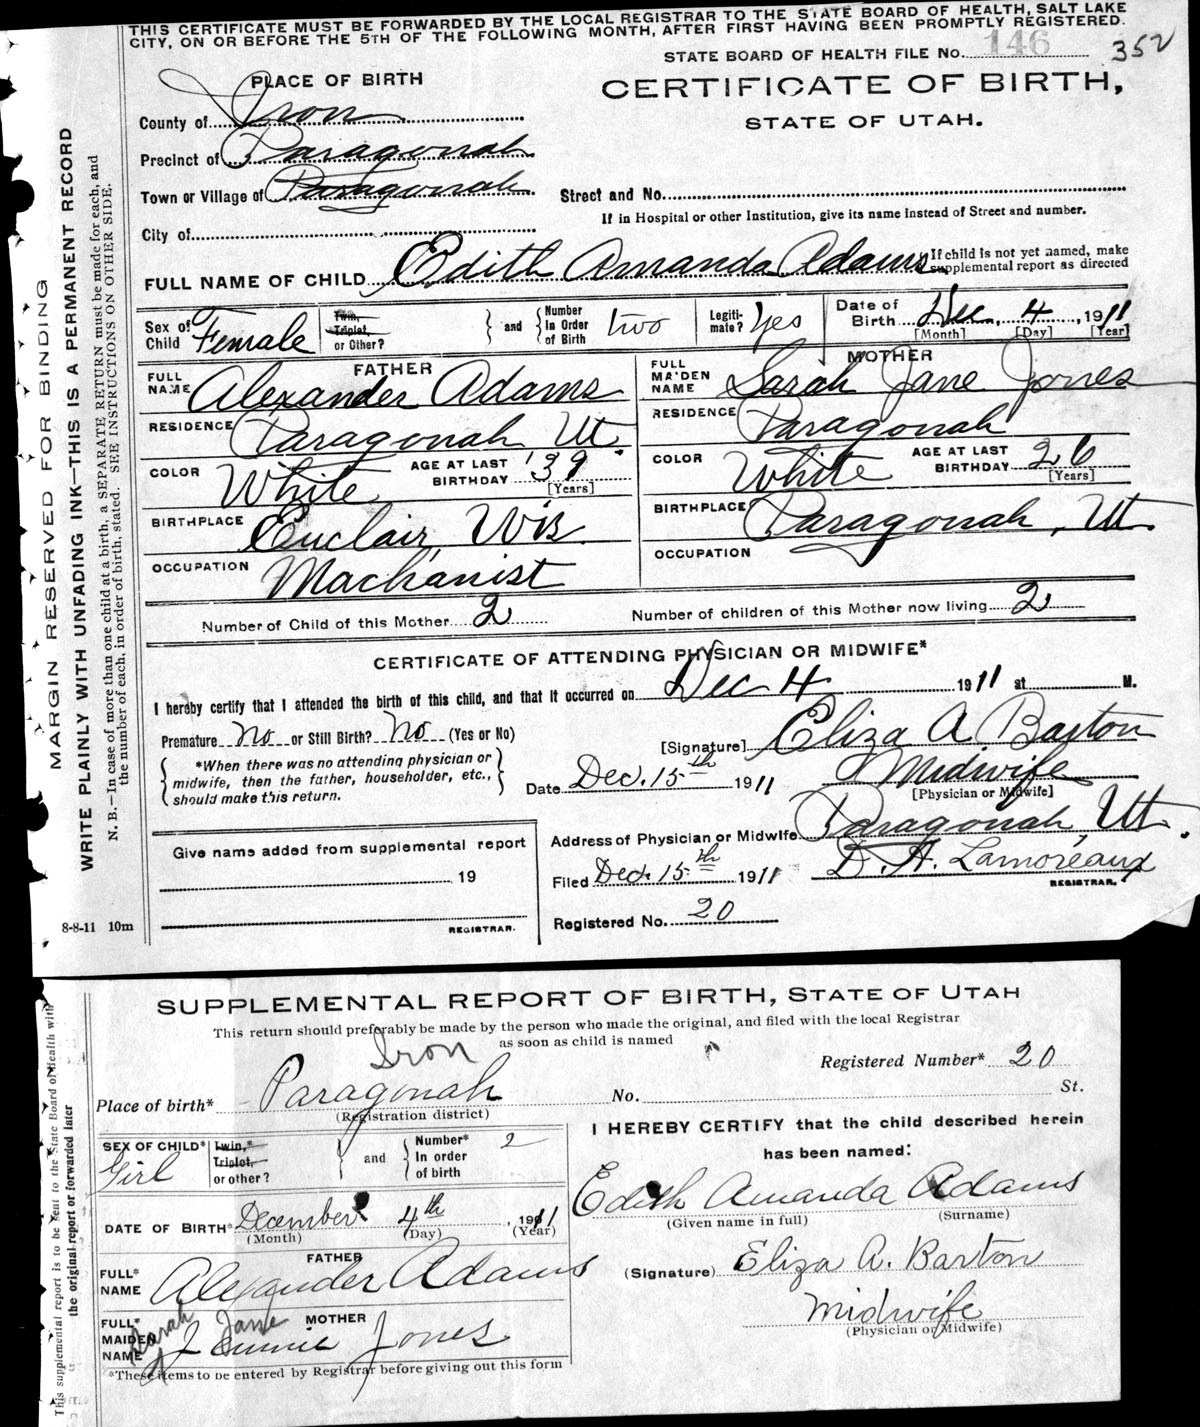 THIS CERTIFICATE MUST BE FORWARDED BY THE LOCAL REGISTRAR TO THE STATE BOARD OF HEALTH, SALT LAKE
CITY, ON OR BEFORE THE 5TH OF THE FOLLOWING MONTH, AFTER FIRST HAVING BEEN PROMPTLY REGISTERED.
STATE BOARD OF HEALTH FILE No. 146 352
PLACE OF BIRTH
CERTIFICATE OF BIRTH,
STATE OF UTAH.
County of Iron
Precinct of Paragonah
Town or Village of Paragonah
Street and No.
If in Hospital or other Institution, give its name instead of Street and number.
City of
FULL NAME OF CHILD Edith Amanda Adams
If child is not yet named, make
supplemental report as directed
Sex of Child Female
Twin, Triplet, or Other?
and
Number In Order of Birth two
Legiti-mate? Yes
Date of Birth Dec. 4, 1911
[Month] [Day] [Year]
FATHER
FULL NAME Alexander Adams
RESIDENCE Paragonah Ut.
COLOR White
AGE AT LAST BIRTHDAY 39 [Years]
BIRTHPLACE Euclair, Wis
OCCUPATION Machanist
MOTHER
FULL MAIDEN NAME Sarah Jane Jones
RESIDENCE Paragonah
COLOR White
AGE AT LAST BIRTHDAY 26 [Years]
BIRTHPLACE Paragonah, Ut.
OCCUPATION
Number of Child of this Mother 2
Number of children of this Mother now living 2
CERTIFICATE OF ATTENDING PHYSICIAN OR MIDWIFE*
I hereby certify that I attended the birth of this child, and that it occurred on Dec 4 1911 at M.
Premature No or Still Birth? No (Yes or No)
*When there was no attending physician or
midwife, then the father, householder, etc.,
should make this return.
[Signature] Eliza A. Barton
Midwife
[Physician or Midwife]
Date Dec. 15th 1911
Address of Physician or Midwife Paragonah, Ut.
Filed Dec. 15th 1911 D. A. Lamoreaux
REGISTRAR.
Registered No. 20
Give name added from supplemental report
19
REGISTRAR.
8-8-11 10m
MARGIN RESERVED FOR BINDING
WRITE PLAINLY WITH UNFADING INK—THIS IS A PERMANENT RECORD
N. B.—In case of more than one child at a birth, a SEPARATE RETURN must be made for each, and
the number of each, in order of birth, stated. SEE INSTRUCTIONS ON OTHER SIDE.
SUPPLEMENTAL REPORT OF BIRTH, STATE OF UTAH
This return should preferably be made by the person who made the original, and filed with the local Registrar
as soon as child is named
Iron
Registered Number* 20
Place of birth* Paragonah
(Registration district)
No. St.
SEX OF CHILD* Girl
Twin,* Triplet, or other?
and
Number* In order of birth 2
DATE OF BIRTH* December 4th, 1911
(Month) (Day) (Year)
FATHER
FULL* NAME Alexander Adams
MOTHER
Sarah Jane
FULL* MAIDEN NAME Jennie Jones
*These items to be entered by Registrar before giving out this form
I HEREBY CERTIFY that the child described herein
has been named:
Edith Amanda Adams
(Given name in full) (Surname)
(Signature) Eliza A. Barton
Midwife
(Physician or Midwife)
This supplemental report is to be sent to the State Board of Health with
the original report or forwarded later